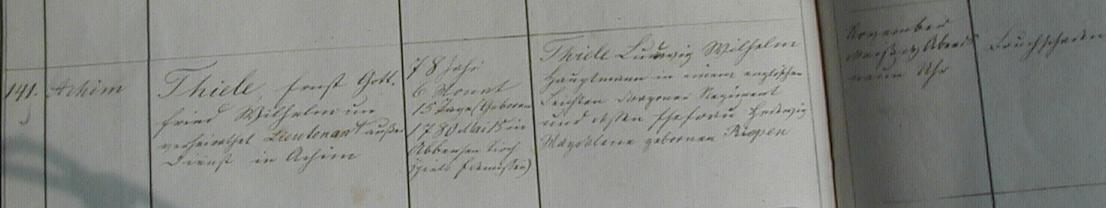 191. Achim
Thiele, Ernst Gott-
fried Wilhelm un
verheirathet Lieutenant außer
Dienst in Achim
78 Jahr
6 Monat
15 Tage (Geboren
1780 in
Abbensen Kirch
spiels Edemissen)
Thiele Ludwig Wilhelm
Hauptmann in einem englischen
Leichten Dragoner Regiment
und dessen Ehefrau Hedewig
Magdalene gebornen Riepen
November
Abends
neun Uhr
Bruchschaden